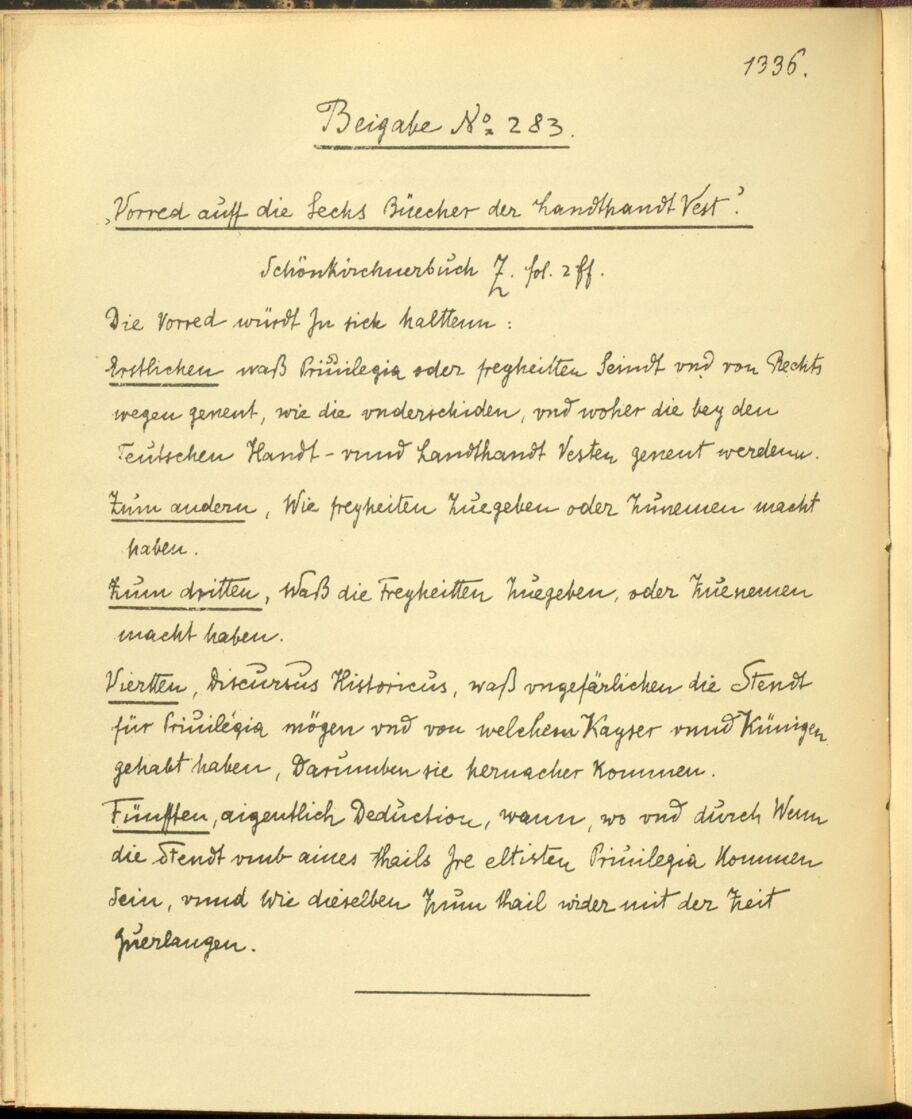 1336.
Beigabe No 283.
„Vorred auff die Sechs Büecher der Landthandt Vest".
Schönkirchnerbuch Z. fol. 2 ff.
Die Vorred würdt In sich halttenn :
Erstlichen waß Priuilegia oder freyheitten Seindt vnd von Rechts
wegen genent, wie die vnderschiden, vnd woher die bey den
Teutschen Handt- vnnd Landthandt Vesten genent werdenn.
Zum andern, Wie freyheiten Zuegeben oder Zunemen macht
haben.
Zum dritten, Waß die Freyheitten Zuegeben, oder Zuenemen
macht haben.
Viertten, Discursus Historicus, waß vngefärlichen die Stendt
für Priuilegia mögen vnd von welchem Kayser vnnd Künigen
gehabt haben, Darumben sie hernacher kommen.
Fünfften, aigentlich Deduction, wann, wo vnd durch Wenn
die Stendt vmb aines thails Ire eltisten Priuilegia kommen
Sein, vnnd Wie dieselben Zum thail wider mit der Zeit